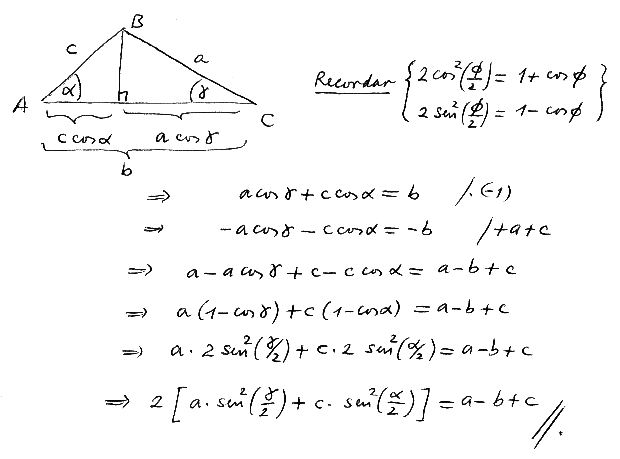 B
c a
A α γ C
c cos α a cos γ
b
Recordar { 2 cos²(ϕ/2) = 1 + cos ϕ
2 sin²(ϕ/2) = 1 - cos ϕ }
⇒ a cos γ + c cos α = b /·(-1)
⇒ -a cos γ - c cos α = -b /+a+c
⇒ a - a cos γ + c - c cos α = a - b + c
⇒ a (1 - cos γ) + c (1 - cos α) = a - b + c
⇒ a · 2 sin²(γ/2) + c · 2 sin²(α/2) = a - b + c
⇒ 2 [ a · sin²(γ/2) + c · sin²(α/2) ] = a - b + c //.